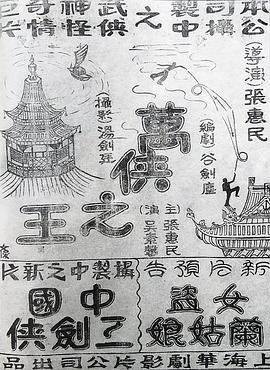 本公司攝製中之武俠神怪奇情巨片
(導演)張惠民
(編劇)谷劍塵
萬俠之王
(攝影)湯劍廷
(主演)張惠民
吳素馨
新片預告
攝製中之新片
女盜
蘭姑娘
中國
三劍俠
上海華劇影片公司出品